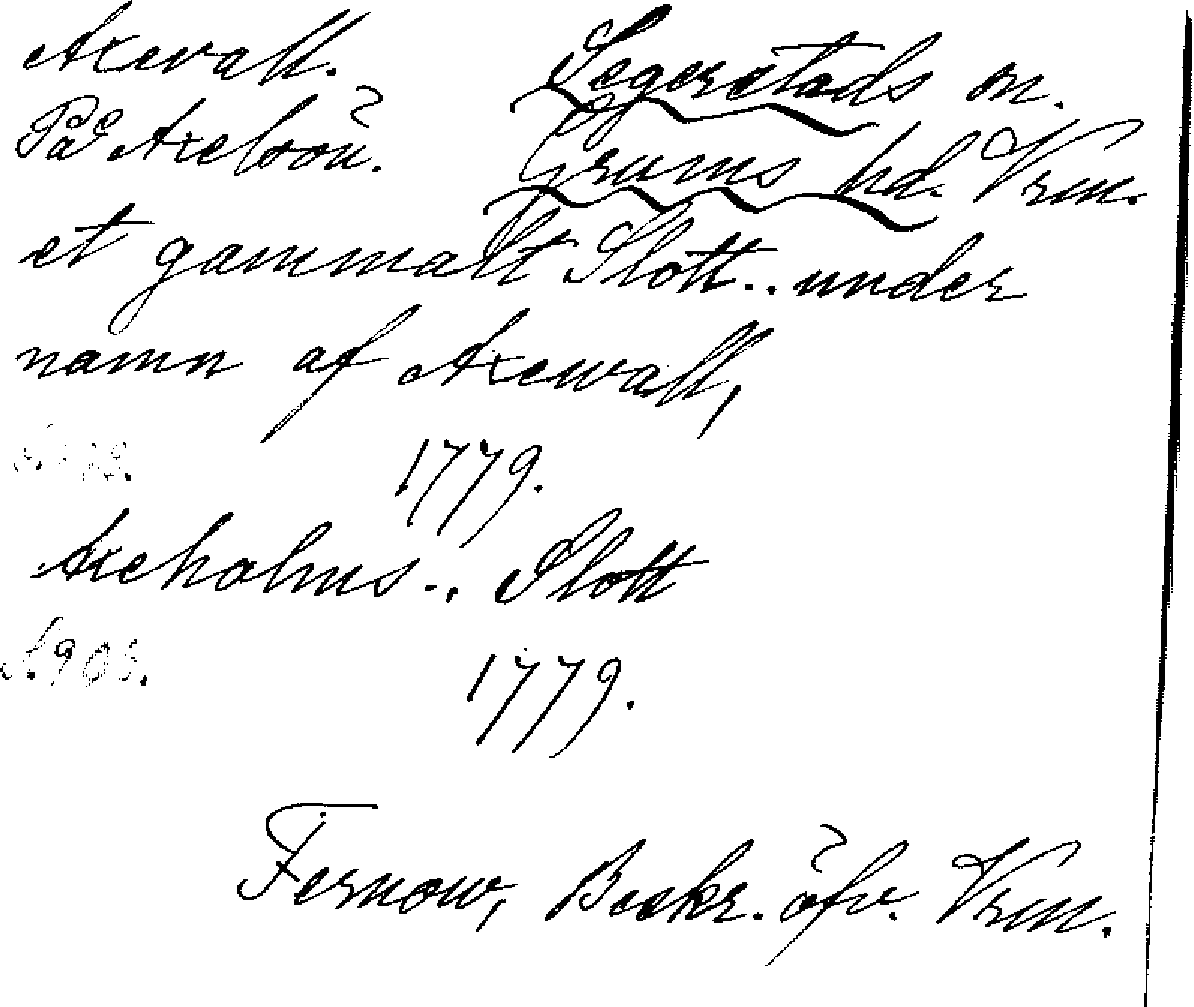 Axevall. Segerstads sn.
På Axelöön. Grums hd. Vrm.
et gammalt Slott.. under
namn af Axewall,
1779.
Axeholms.. Slott
S. 903. 1779.
Fernow, Beskr. öfv. Vrm.